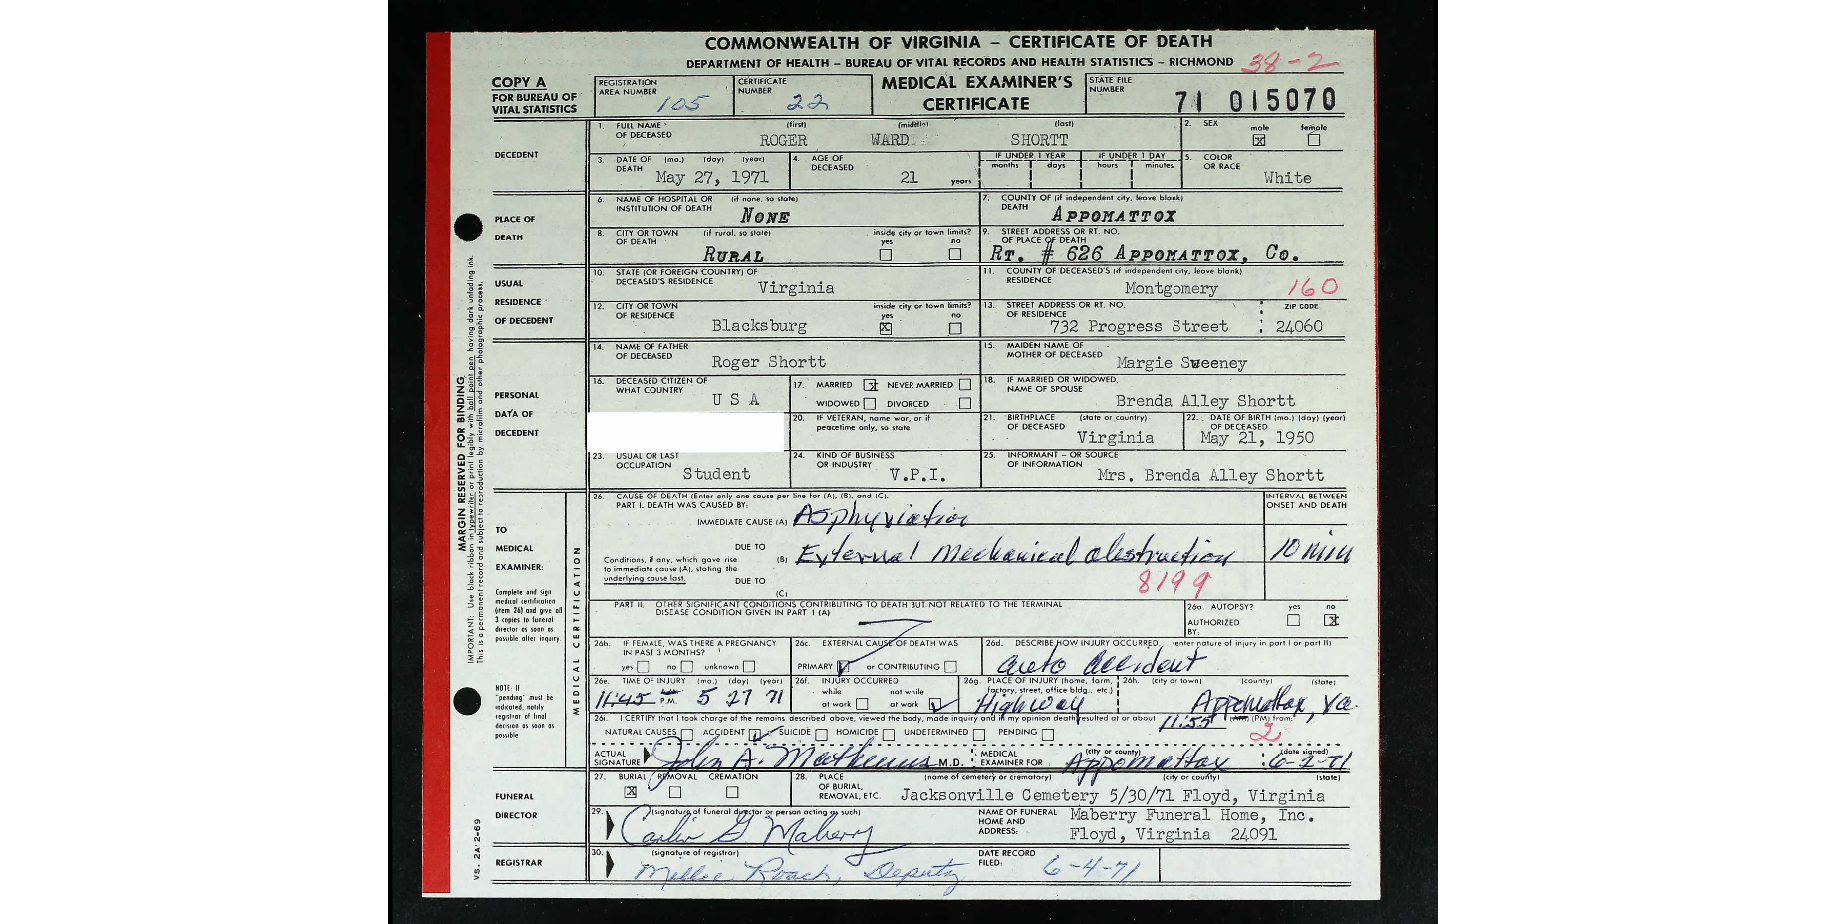 COMMONWEALTH OF VIRGINIA – CERTIFICATE OF DEATH
DEPARTMENT OF HEALTH – BUREAU OF VITAL RECORDS AND HEALTH STATISTICS – RICHMOND 38-2
COPY A
FOR BUREAU OF VITAL STATISTICS
REGISTRATION AREA NUMBER 105
CERTIFICATE NUMBER 22
MEDICAL EXAMINER'S CERTIFICATE
STATE FILE NUMBER 71 015070
DECEDENT
1. FULL NAME OF DECEASED (first) (middle) (last) ROGER WARD SHORTT
2. SEX male X female
3. DATE OF DEATH (mo.) (day) (year) May 27, 1971
4. AGE OF DECEASED 21 years
IF UNDER 1 YEAR months days
IF UNDER 1 DAY hours minutes
5. COLOR OR RACE White
PLACE OF DEATH
6. NAME OF HOSPITAL OR INSTITUTION OF DEATH (if none, so state) NONE
7. COUNTY OF DEATH (if independent city, leave blank) APPOMATTOX
8. CITY OR TOWN OF DEATH (if rural, so state) RURAL inside city or town limits? yes no
9. STREET ADDRESS OR RT. NO. OF PLACE OF DEATH RT. # 626 APPOMATTOX, CO.
USUAL RESIDENCE OF DECEDENT
10. STATE (OR FOREIGN COUNTRY) OF DECEASED'S RESIDENCE Virginia
11. COUNTY OF DECEASED'S RESIDENCE (if independent city, leave blank) Montgomery 160
12. CITY OR TOWN OF RESIDENCE Blacksburg inside city or town limits? yes X no
13. STREET ADDRESS OR RT. NO. OF RESIDENCE 732 Progress Street ZIP CODE 24060
PERSONAL DATA OF DECEDENT
14. NAME OF FATHER OF DECEASED Roger Shortt
15. MAIDEN NAME OF MOTHER OF DECEASED Margie Sweeney
16. DECEASED CITIZEN OF WHAT COUNTRY U S A
17. MARRIED X NEVER MARRIED WIDOWED DIVORCED
18. IF MARRIED OR WIDOWED, NAME OF SPOUSE Brenda Alley Shortt
20. IF VETERAN, name war, or if peacetime only, so state
21. BIRTHPLACE OF DECEASED (state or country) Virginia
22. DATE OF BIRTH OF DECEASED (mo.) (day) (year) May 21, 1950
23. USUAL OR LAST OCCUPATION Student
24. KIND OF BUSINESS OR INDUSTRY V.P.I.
25. INFORMANT – OR SOURCE OF INFORMATION Mrs. Brenda Alley Shortt
TO MEDICAL EXAMINER:
Complete and sign medical certification (item 26) and give all 3 copies to funeral director as soon as possible after inquiry.
NOTE: If "pending" must be indicated, notify registrar of final decision as soon as possible
MEDICAL CERTIFICATION
26. CAUSE OF DEATH (Enter only one cause per line for (A), (B), and (C).
PART I. DEATH WAS CAUSED BY:
INTERVAL BETWEEN ONSET AND DEATH
IMMEDIATE CAUSE (A) Asphyxiation
DUE TO
Conditions, if any, which gave rise to immediate cause (A), stating the underlying cause last.
(B) External Mechanical obstruction 10 min
DUE TO
(C) 8199
PART II. OTHER SIGNIFICANT CONDITIONS CONTRIBUTING TO DEATH BUT NOT RELATED TO THE TERMINAL DISEASE CONDITION GIVEN IN PART I (A)
26a. AUTOPSY? yes no X
AUTHORIZED BY:
26b. IF FEMALE, WAS THERE A PREGNANCY IN PAST 3 MONTHS? yes no unknown
26c. EXTERNAL CAUSE OF DEATH WAS PRIMARY or CONTRIBUTING
26d. DESCRIBE HOW INJURY OCCURRED enter nature of injury in part I or part II) Auto Accident
26e. TIME OF INJURY (mo.) (day) (year) 11:45 P.M. 5 27 71
26f. INJURY OCCURRED while at work not while at work
26g. PLACE OF INJURY (home, farm, factory, street, office bldg., etc.) Highway
26h. (city or town) (county) (state) Appomattox, Va.
26i. I CERTIFY that I took charge of the remains described above, viewed the body, made inquiry and in my opinion death resulted at or about 11:55 (PM) from: 2
NATURAL CAUSES ACCIDENT SUICIDE HOMICIDE UNDETERMINED PENDING
ACTUAL SIGNATURE John A. M.D.
MEDICAL EXAMINER FOR (city or county) Appomattox (date signed) 6-2-71
FUNERAL DIRECTOR
27. BURIAL X REMOVAL CREMATION
28. PLACE OF BURIAL, REMOVAL, ETC. (name of cemetery or crematory) (city or county) (state) Jacksonville Cemetery 5/30/71 Floyd, Virginia
29. (signature of funeral director or person acting as such) Maberry
NAME OF FUNERAL HOME AND ADDRESS: Maberry Funeral Home, Inc.
Floyd, Virginia 24091
REGISTRAR
30. (signature of registrar) Roach, Deputy
DATE RECORD FILED: 6-4-71
MARGIN RESERVED FOR BINDING
IMPORTANT: Use black ribbon in typewriter or print legibly with ball point pen having dark unfading ink.
This is a permanent record and subject to reproduction by microfilm and other photographic process.
VS. 2A 2-69